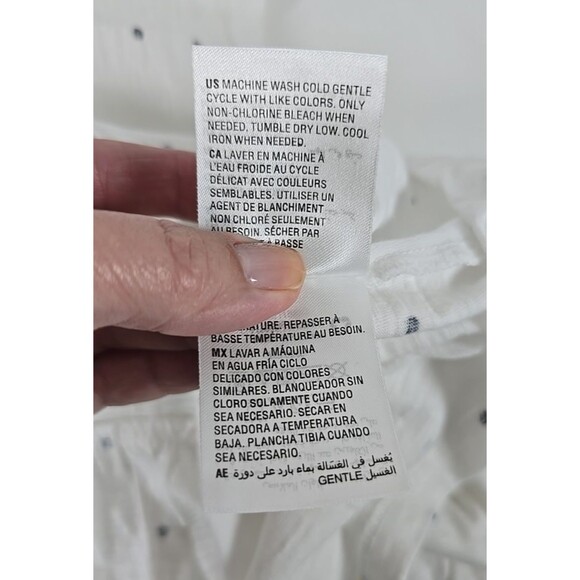 US MACHINE WASH COLD GENTLE
CYCLE WITH LIKE COLORS. ONLY
NON-CHLORINE BLEACH WHEN
NEEDED. TUMBLE DRY LOW. COOL
IRON WHEN NEEDED.
CA LAVER EN MACHINE À
L'EAU FROIDE AU CYCLE
DÉLICAT AVEC COULEURS
SEMBLABLES. UTILISER UN
AGENT DE BLANCHIMENT
NON CHLORÉ SEULEMENT
AU BESOIN. SÉCHER PAR
À BASSE
REPASSER À
BASSE TEMPÉRATURE AU BESOIN.
MX LAVAR A MÁQUINA
EN AGUA FRÍA CICLO
DELICADO CON COLORES
SIMILARES. BLANQUEADOR SIN
CLORO SOLAMENTE CUANDO
SEA NECESARIO. SECAR EN
SECADORA A TEMPERATURA
BAJA. PLANCHA TIBIA CUANDO
SEA NECESARIO.
AE يُغسل في الغسّالة بماء بارد على دورة
الغسيل GENTLE